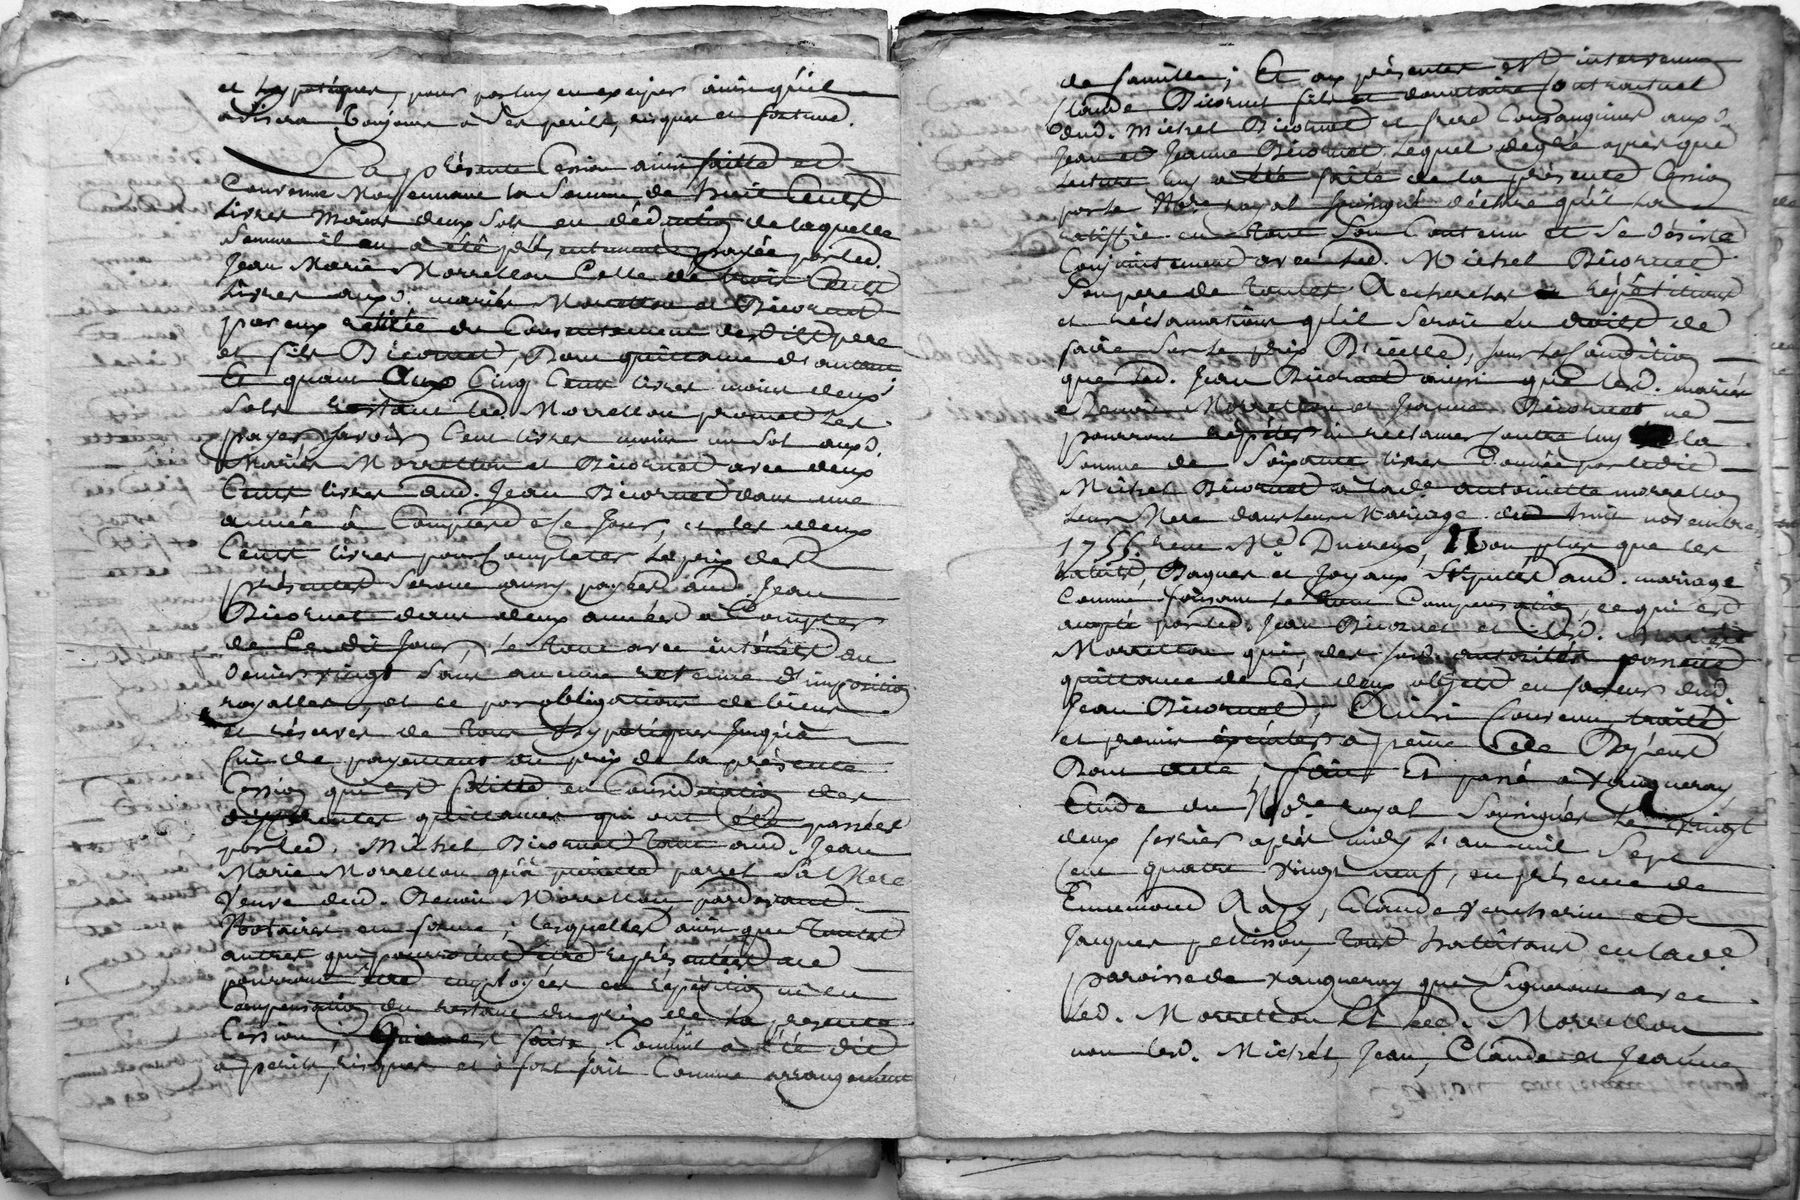 et hypotéques, pour par luy en exciper ainsi qu'il
avisera Toujours à Ses perils, risques et fortune.
La présente Cession ainsi faitte et
Convenue Moyennant la Somme de huit Cents
Livres Moins deux Sols en déduction de laquelle
Somme il en a été présentement payée par led.
Jean Marie Morrellon Celle de trois Cents
Livres auxd. mariés Morrellon et Bicornet
par eux retirée du Consentement desdits pere
et fils Bicornet, Dont quittance d'autant
Et quant Aux Cinq Cents livres moins deux
Sols restant led. Morrellon promet les
payer Savoir Cent livres moins un Sol auxd.
Mariés Morrellon et Bicornet avec deux
Cents livres aud. Jean Bicornet dans une
année à Compter de Ce Jour, et les deux
Cents livres pour Completer le prix des
présentes Seront aussy payées aud. Jean
Bicornet dans deux années à Compter
de Ce dit Jour, le tout avec intérêts au
denier vingt Sans aucune retenue d'imposition
royalles, et ce par obligations de biens
et réserves de tous hypotéques Jusqu'à
fin de payement du prix de la présente
Cession qui est faitte en Considération des
différentes quittances qui ont été passées
par led. Michel Bicornet tant aud. Jean
Marie Morrellon qu'à Sa Mere
Veuve dud. Benoit Morrellon pardevant
Notaires en forme, lesquelles ainsi que toutes
autres qui pourroient être représentées ne
pourront être employées en répétition ni en
Compensation du restant du prix de la présente
Cession, qui est faite Comme a été dit
à perils, risques et à fort fait Comme arrangement
de famille; Et aux présentes est intervenu
Claude Bicornet fils et donataire Contractuel
dud. Michel Bicornet et frere Consanguin auxd.
Jean et Jeanne Bicornet, Lequel de gré après que
Lecture luy a été faite de la présente Cession
par le No.re royal soussigné déclare qu'il la
ratiffie en tout Son Contenu et Se désiste
Conjointement avec led. Michel Bicornet
Son pere de toutes Recherches répétitions
et réclamations qu'il Seroit en droits de
faire Sur le prix D'icelle, sous la Condition
que led. Jean Bicornet ainsi que lesd. mariés
Benoit Morrellon et Jeanne Bicornet ne
pourront répéter ni reclamer Contre luy la
Somme de Soixante livres donnée par ledit
Michel Bicornet à lad. antoinette morrellon
Leur Mere dans leur Mariage du huit novembre
1755. reçu Me. Ducreux, Non plus que les
habits, Bagues et Joyaux Stipulés aud. mariage
Comme faisant le tout Compensation, ce qui est
accepté par led. Jean Bicornet et lesd. Mariés
Morrellon qui, des Sus autorités passent
quittance de Ces deux objets en faveur dud.
Jean Bicornet; Ainsi Convenu, traité
et promis éxécuter à peine de Dépens
Dont acte, fait Et passé a vaugneray
Etude du No.re royal Soussigné le vingt
deux fevrier après midy L'an mil Sept
Cent quatre vingt neuf, en présence de
Ennemond Claude et
Jacques pellisson, tous habitans en lad.
paroisse de vaugneray qui Signeront avec
led. Morrellon Et led. Morrellon
non lesd. Michel, Jean, Claude et Jeanne